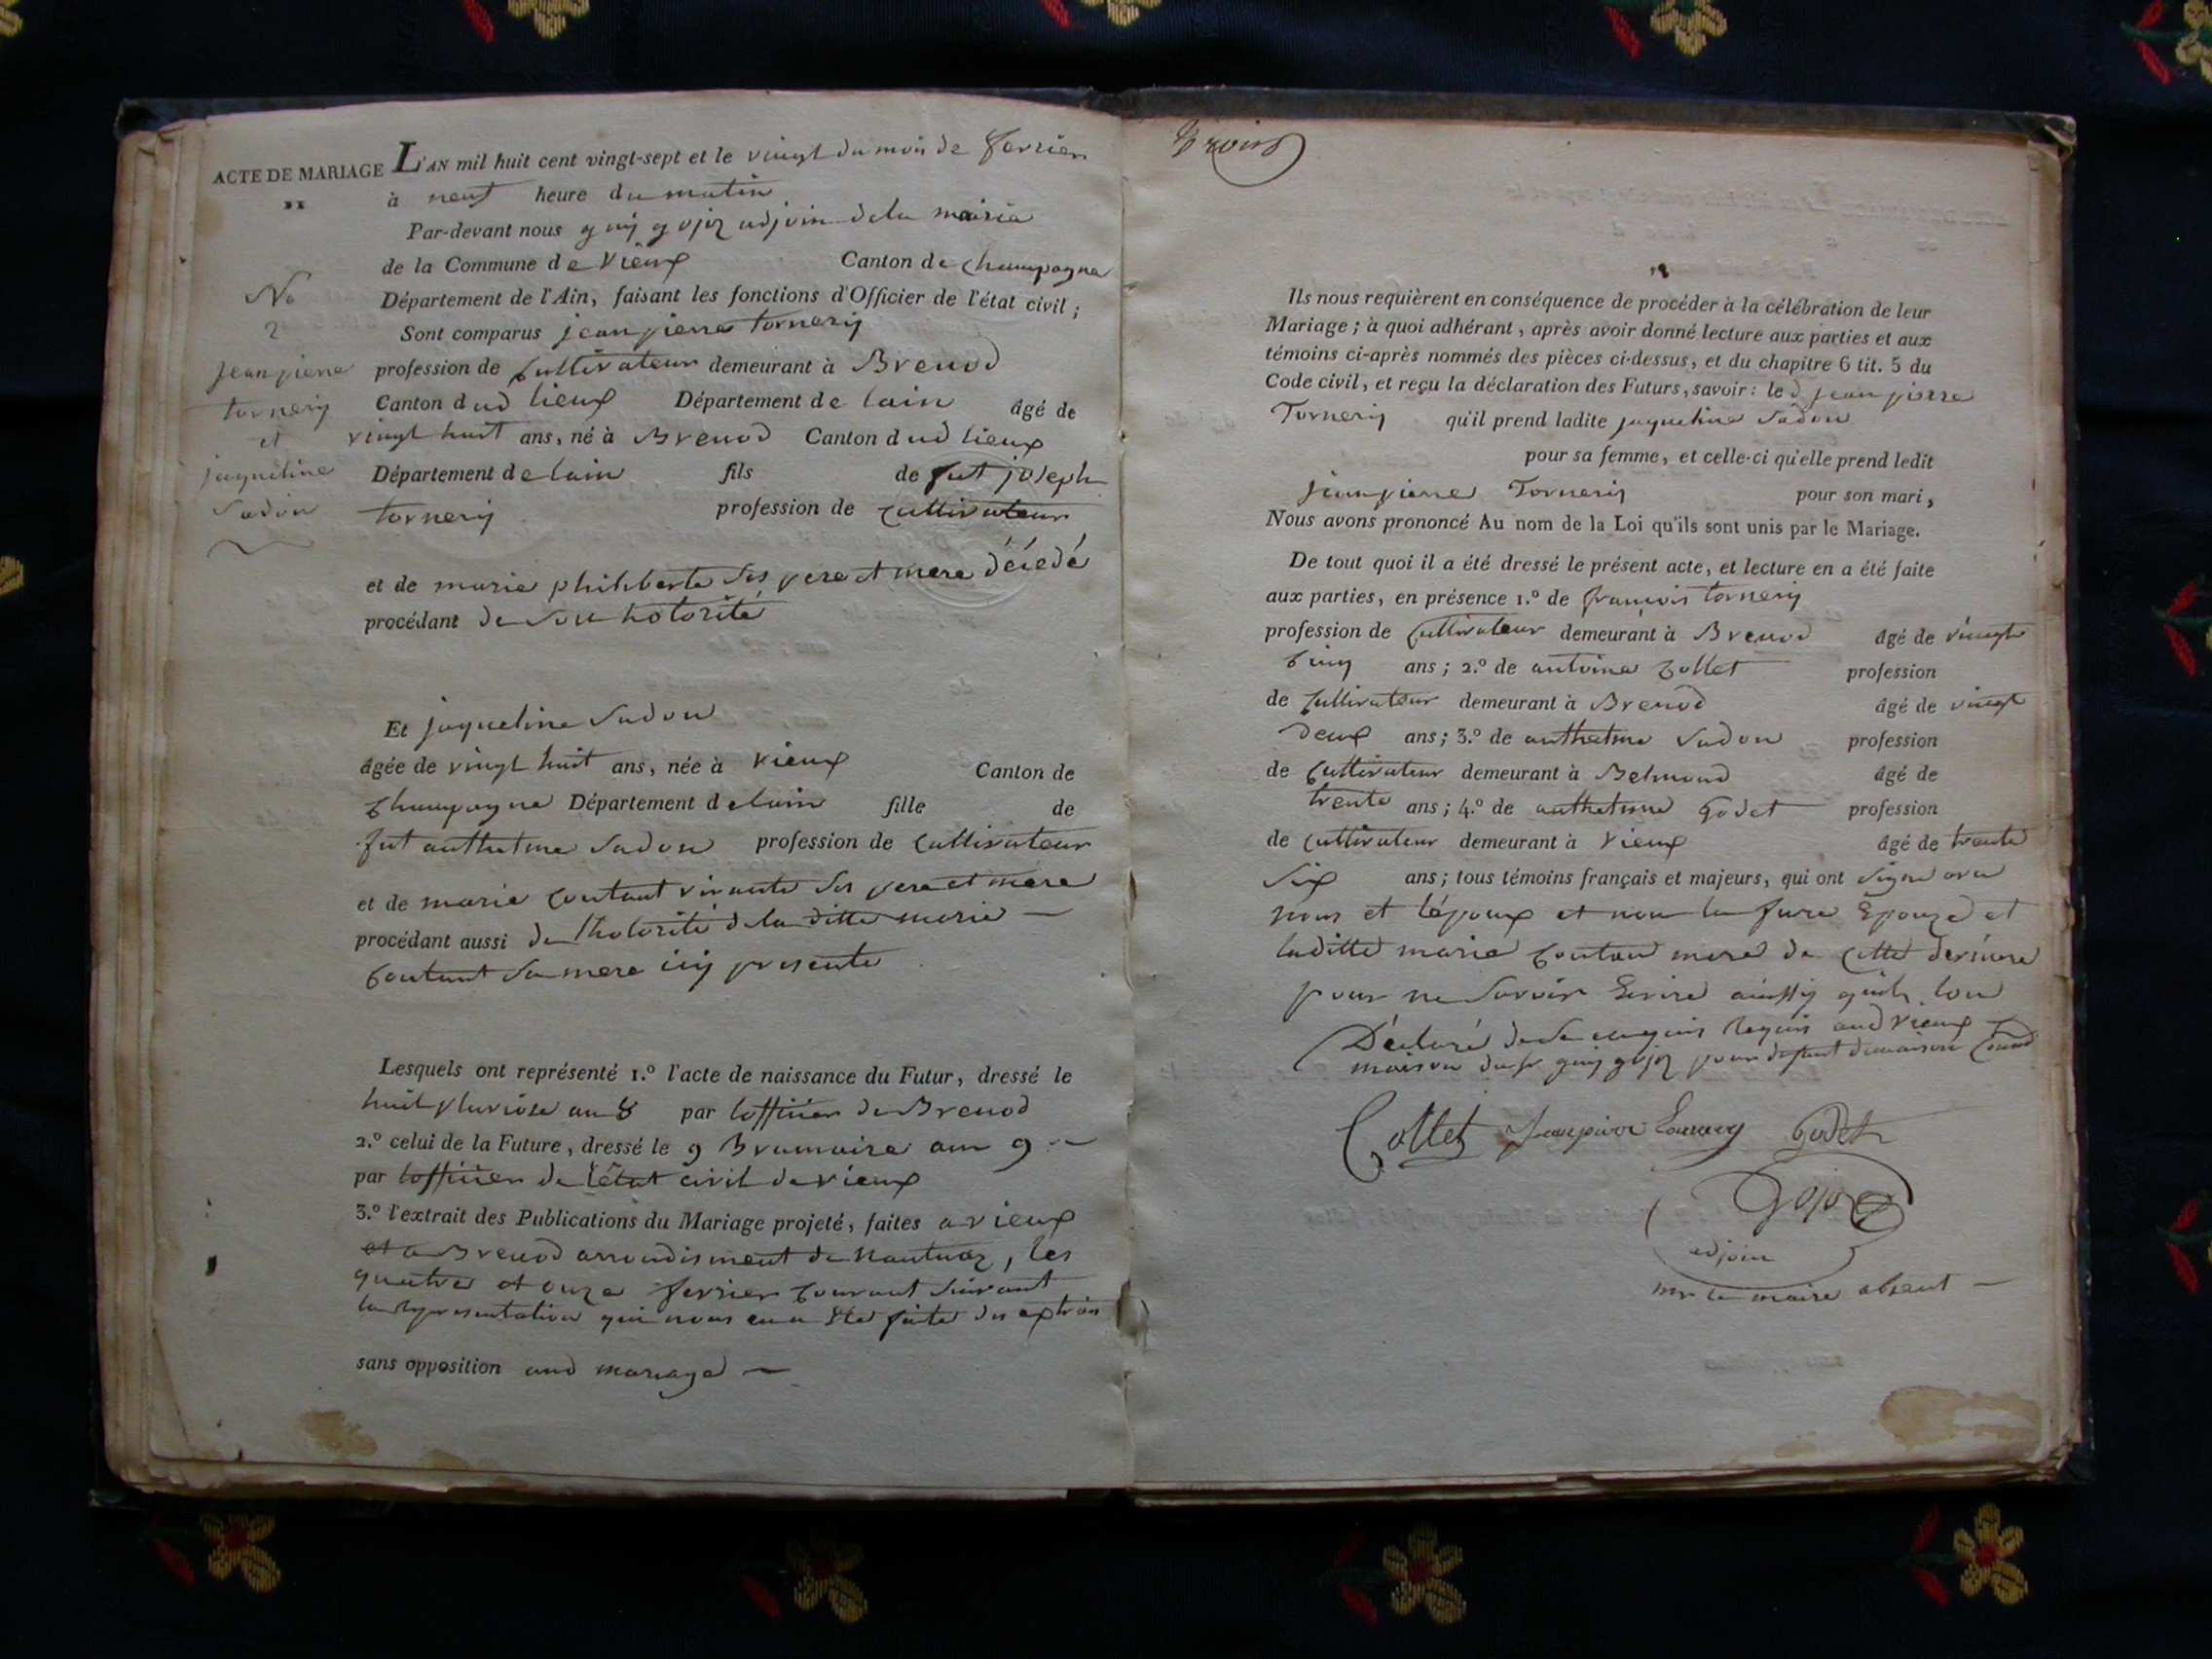 ACTE DE MARIAGE
No
2
jean pierre
tornery
et
jaqueline
Sadon
L'AN mil huit cent vingt-sept et le vingt du mois de fevrier
à neuf heure du matin
Par-devant nous guy gojoz adjoin de la mairia
de la Commune de Vieux Canton de Champagne
Département de l'Ain, faisant les fonctions d'Officier de l'état civil ;
Sont comparus jean pierre tornery
profession de Cultivateur demeurant à Brenod
Canton dud lieux Département de lain âgé de
vingt huit ans, né à Brenod Canton dud lieux
Département de lain fils de fut joseph
tornery profession de Cultivateur
et de marie philiberte Ses pere et mere décedé
procédant de Son hotorité
Et jaqueline Sadon
âgée de vingt huit ans, née à Vieux Canton de
Champagne Département de lain fille de
fut anthelme Sadon profession de Cultivateur
et de marie Coutant vivante Ses pere et mere
procédant aussi de lhotorité de la ditte marie
Coutant Sa mere icy presente
Lesquels ont représenté 1.º l'acte de naissance du Futur, dressé le
huit pluviose an 8 par lofficier de Brenod
2.º celui de la Future, dressé le 9 Brumaire an 9
par lofficier de létat civil de Vieux
3.º l'extrait des Publications du Mariage projeté, faites a vieux
et a Brenod arrondisment de Nantuaz, les
quatre et onze fevrier Courant Suivant
la representation qui nous en a été faite des extrais
sans opposition aud mariage
trois
Ils nous requièrent en conséquence de procéder à la célébration de leur
Mariage ; à quoi adhérant, après avoir donné lecture aux parties et aux
témoins ci-après nommés des pièces ci-dessus, et du chapitre 6 tit. 5 du
Code civil, et reçu la déclaration des Futurs, savoir : led jean pierre
Tornery qu'il prend ladite jaqueline Sadon
pour sa femme, et celle-ci qu'elle prend ledit
jean pierre Tornery pour son mari,
Nous avons prononcé Au nom de la Loi qu'ils sont unis par le Mariage.
De tout quoi il a été dressé le présent acte, et lecture en a été faite
aux parties, en présence 1.º de francois tornery
profession de Cultivateur demeurant à Brenod âgé de vingt
Cinq ans ; 2.º de antoine Collet profession
de Cultivateur demeurant à Brenod âgé de vingt
deux ans ; 3.º de anthelme Sadon profession
de Cultivateur demeurant à Belmond âgé de
trente ans ; 4.º de anthelme Godet profession
de Cultivateur demeurant à Vieux âgé de trente
Six ans ; tous témoins français et majeurs, qui ont Signe avec
nous et lépoux et non la Epouze et
laditte marie Coutan mere de Cette derniere
pour ne Savoir Ecrire ainssy quils lon
Déclaré de Ce enquis Requis aud Vieux
maison du Sr guy gojoz pour defaut de maison
Collet Jean pierre Tornery Godet
Gojoz
adjoin
mr le maire absent